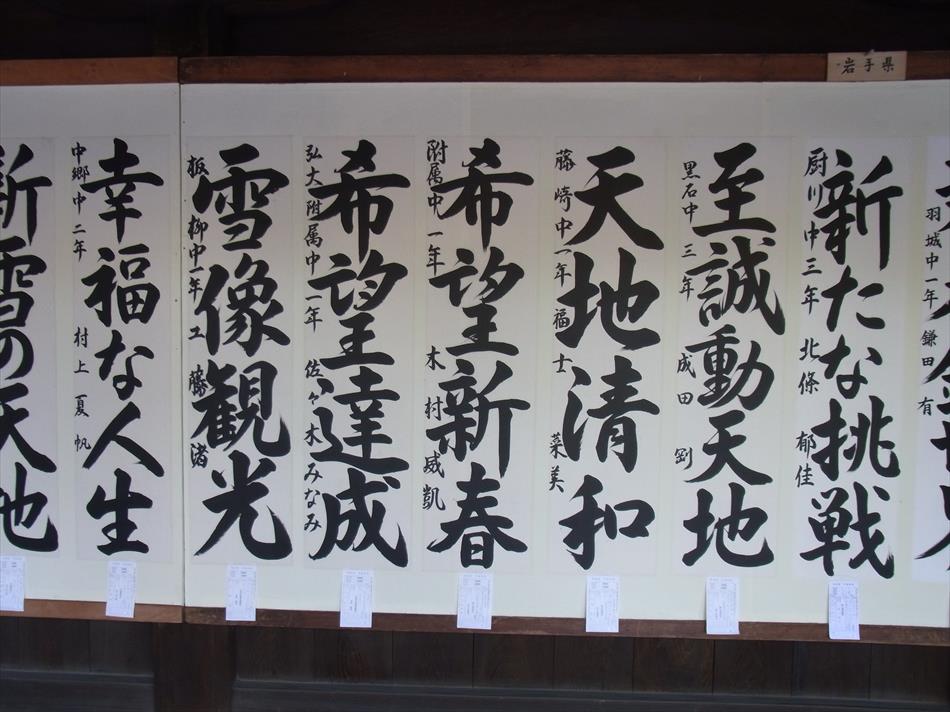 岩手県
羽城中一年 鎌田 有
新たな挑戦
厨川中三年 北條 郁佳
至誠動天地
黒石中 三年 成田 劉
天地清和
藤崎中一年 福士 菜美
希望新春
附属中一年 木村威凱
希望達成
弘大附属中一年 佐々木みなみ
雪像観光
板柳中一年 工藤 渚
幸福な人生
中郷中二年 村上 夏帆
新雪の天地